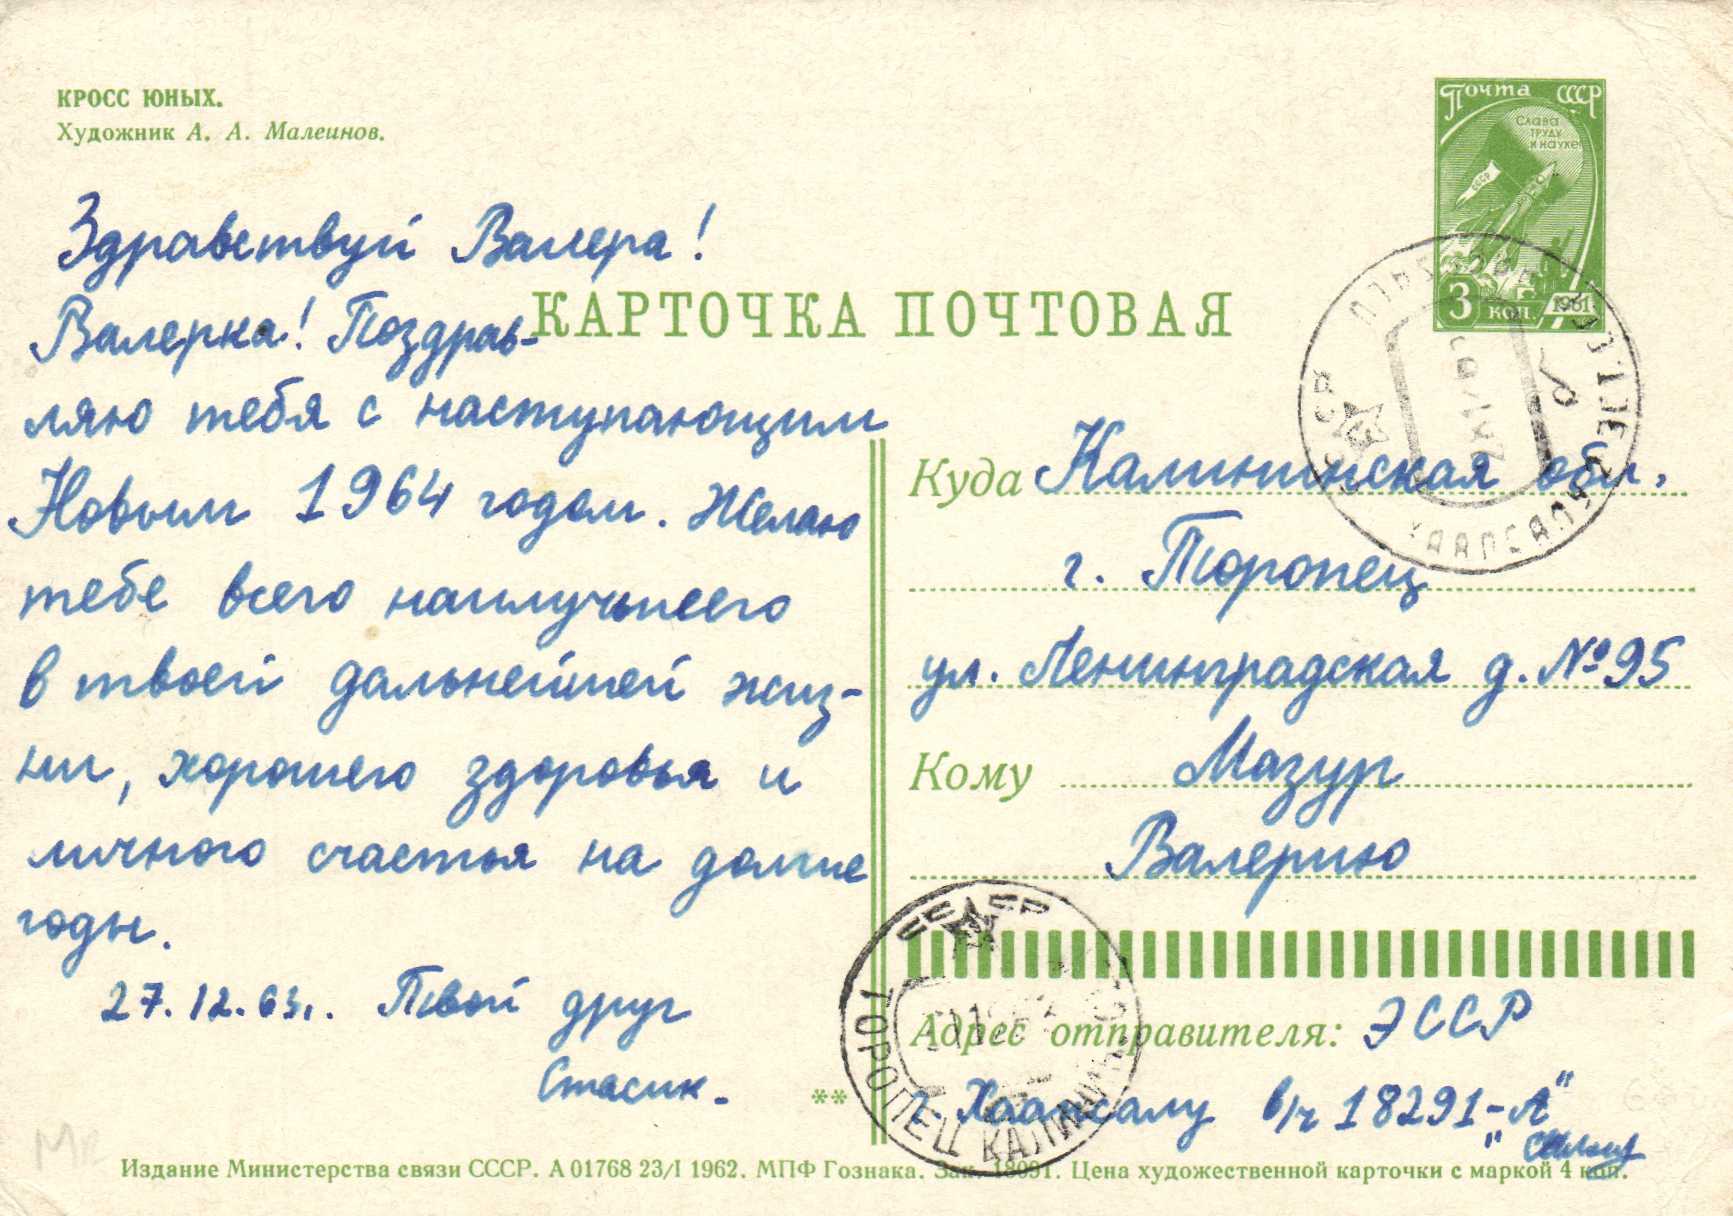 КРОСС ЮНЫХ.
Художник А. А. Малеинов.
Почта СССР
Слава
труду
и науке
СССР
3 коп. 1961
Здравствуй Валера!
Валерка! Поздрав-
ляю тебя с наступающим
Новым 1964 годом. Желаю
тебе всего наилучшего
в твоей дальнейшей жиз-
ни, хорошего здоровья и
личного счастья на долгие
годы.
27.12.63г. Твой друг
Стасик.
КАРТОЧКА ПОЧТОВАЯ
Куда Калининская обл.
г. Торопец
ул. Ленинградская д. №95
Кому Мазур
Валерию
Адрес отправителя: ЭССР
г. Хаапсалу в/ч 18291-"А"
СССР
ХААПСАЛУ
СССР
ТОРОПЕЦ КАЛИНИН
**
Издание Министерства связи СССР. А 01768 23/I 1962. МПФ Гознака. Зак. 18091. Цена художественной карточки с маркой 4 коп.